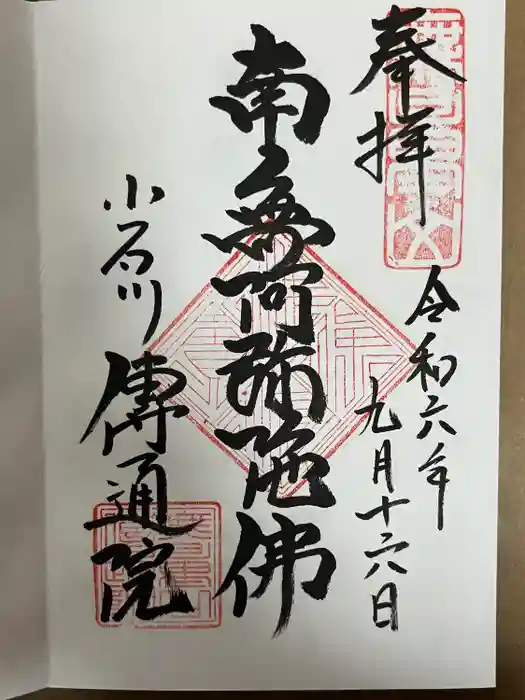 奉拝
令和六年
九月十六日
南無阿弥陀佛
小石川
傳通院